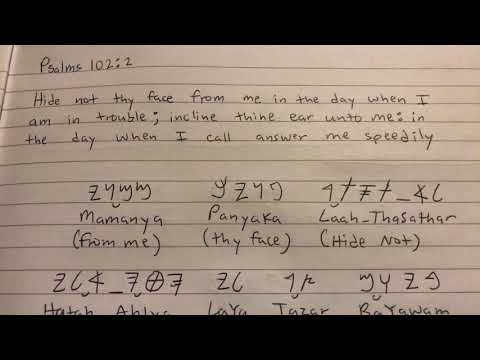 Psalms 102:2
Hide not thy face from me in the day when I
am in trouble; incline thine ear unto me: in
the day when I call answer me speedily
𐤋𐤀_𐤕𐤎𐤕𐤓 𐤐𐤍𐤉𐤊 𐤌𐤌𐤍𐤉
Mamanya Panyaka Laah_Thasathar
(from me) (thy face) (Hide Not)
𐤁𐤉𐤅𐤌 𐤑𐤓 𐤋𐤉 𐤄𐤈𐤄_𐤀𐤋𐤉
Hatah Ahlya LaYa Tazar BaYawam